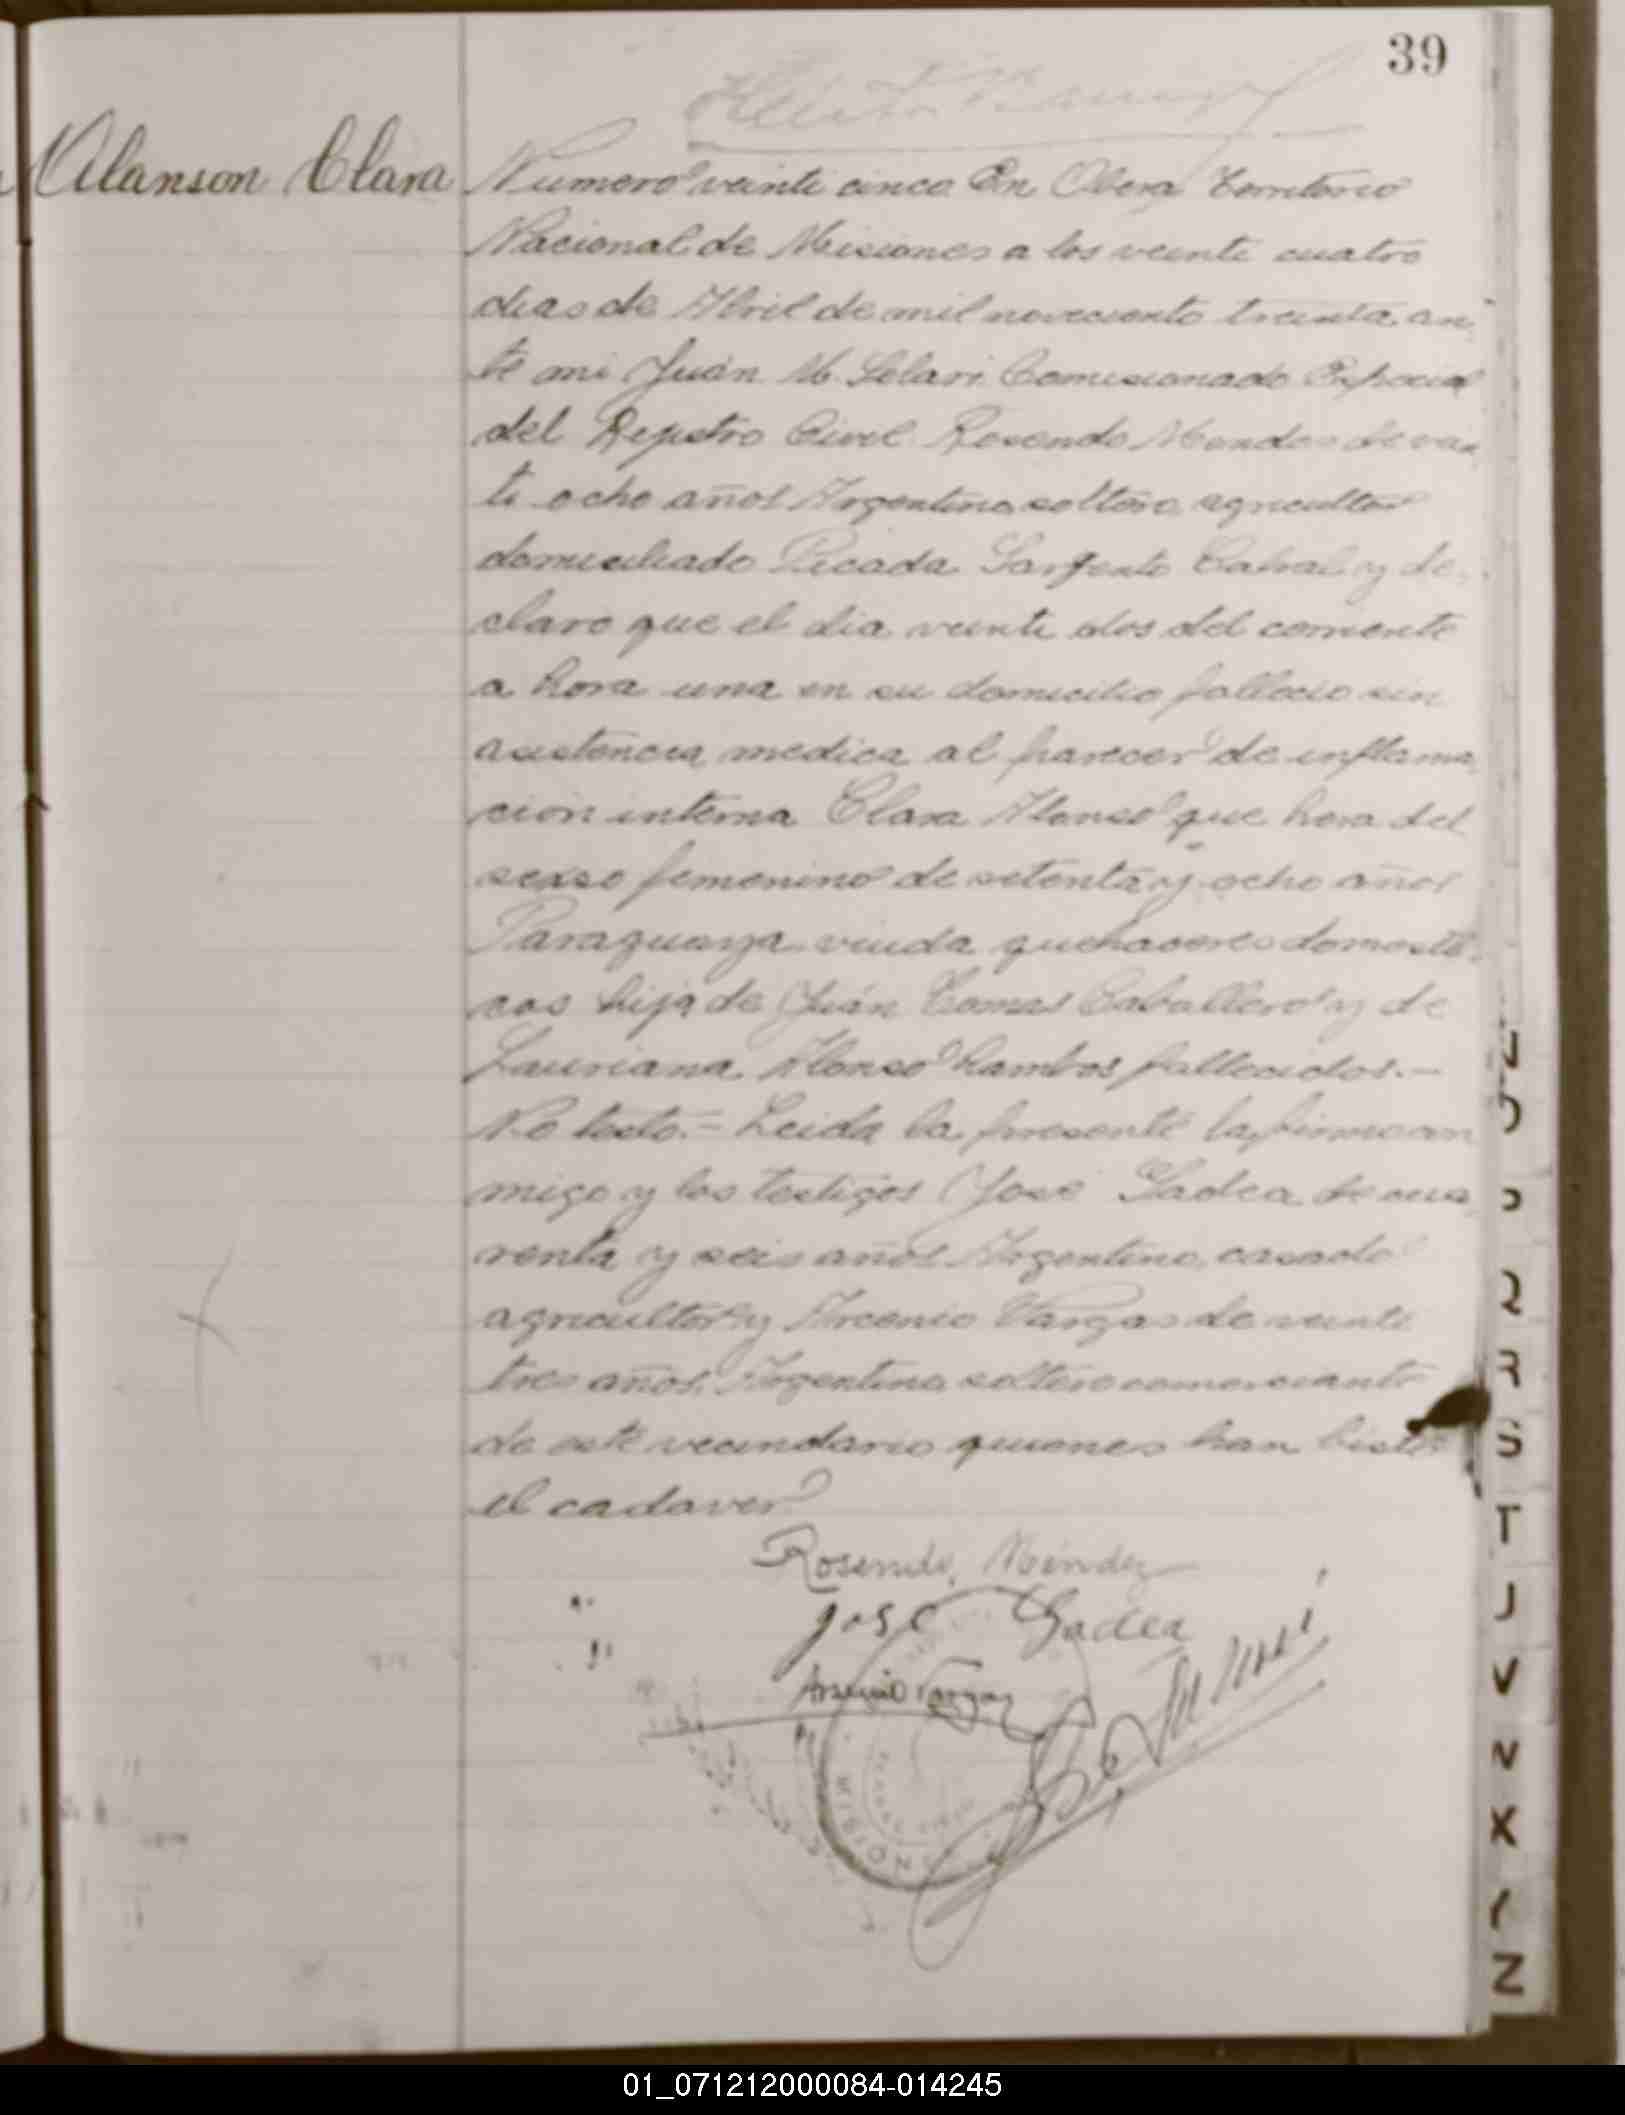 39
Alanson Clara
Numero veinti cinco En Obera Territorio
Nacional de Misiones a los veinti cuatro
dias de Abril de mil noveciento treinta an
te mi Juán M. Lelari Comisionado Especial
del Rejistro Civil Rosendo Mendes de vein
ti ocho años Argentino soltero agricultor
domiciliado Picada Sargento Cabral y de
claro que el dia veinti dos del corriente
a hora una en su domicilio fallecio sin
asistencia medica al parecer de inflama
ción interna Clara Alonso que hera del
sexso femenino de setenta y ocho años
Paraguaya viuda quehaceres domesti
cos hija de Juán Tomas Caballero y de
Lauriana Alonso hambos fallecidos.—
No testo.— Leida la presente la firman con
migo y los testigos José Gadea de cua
renta y seis años Argentino casado
agricultor y Arcenio Vargas de veinti
tres años Argentino soltero comerciante
de este vecindario quienes han bisto
el cadaver
Rosendo Méndez
José Gadea
Arsenio Vargas
MISIONES
N
O
P
Q
R
S
T
U
V
W
X
Y
Z
01_071212000084-014245